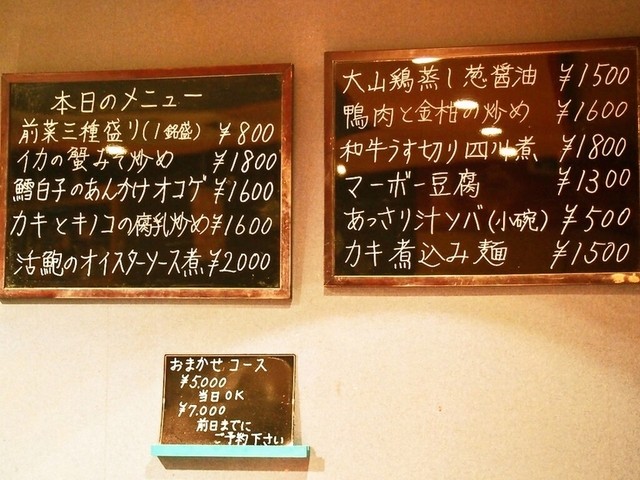 本日のメニュー
前菜三種盛り(1銘盛) ¥800
イカの蟹みそ炒め ¥1800
鱈白子のあんかけオコゲ ¥1600
カキとキノコの腐乳炒め ¥1600
活鮑のオイスターソース煮 ¥2000
大山鶏蒸し葱醤油 ¥1500
鴨肉と金柑の炒め ¥1600
和牛うす切り四川煮 ¥1800
マーボー豆腐 ¥1300
あっさり汁ソバ(小碗) ¥500
カキ煮込み麺 ¥1500
おまかせコース
¥5,000
当日OK
¥7,000
前日までに
ご予約下さい